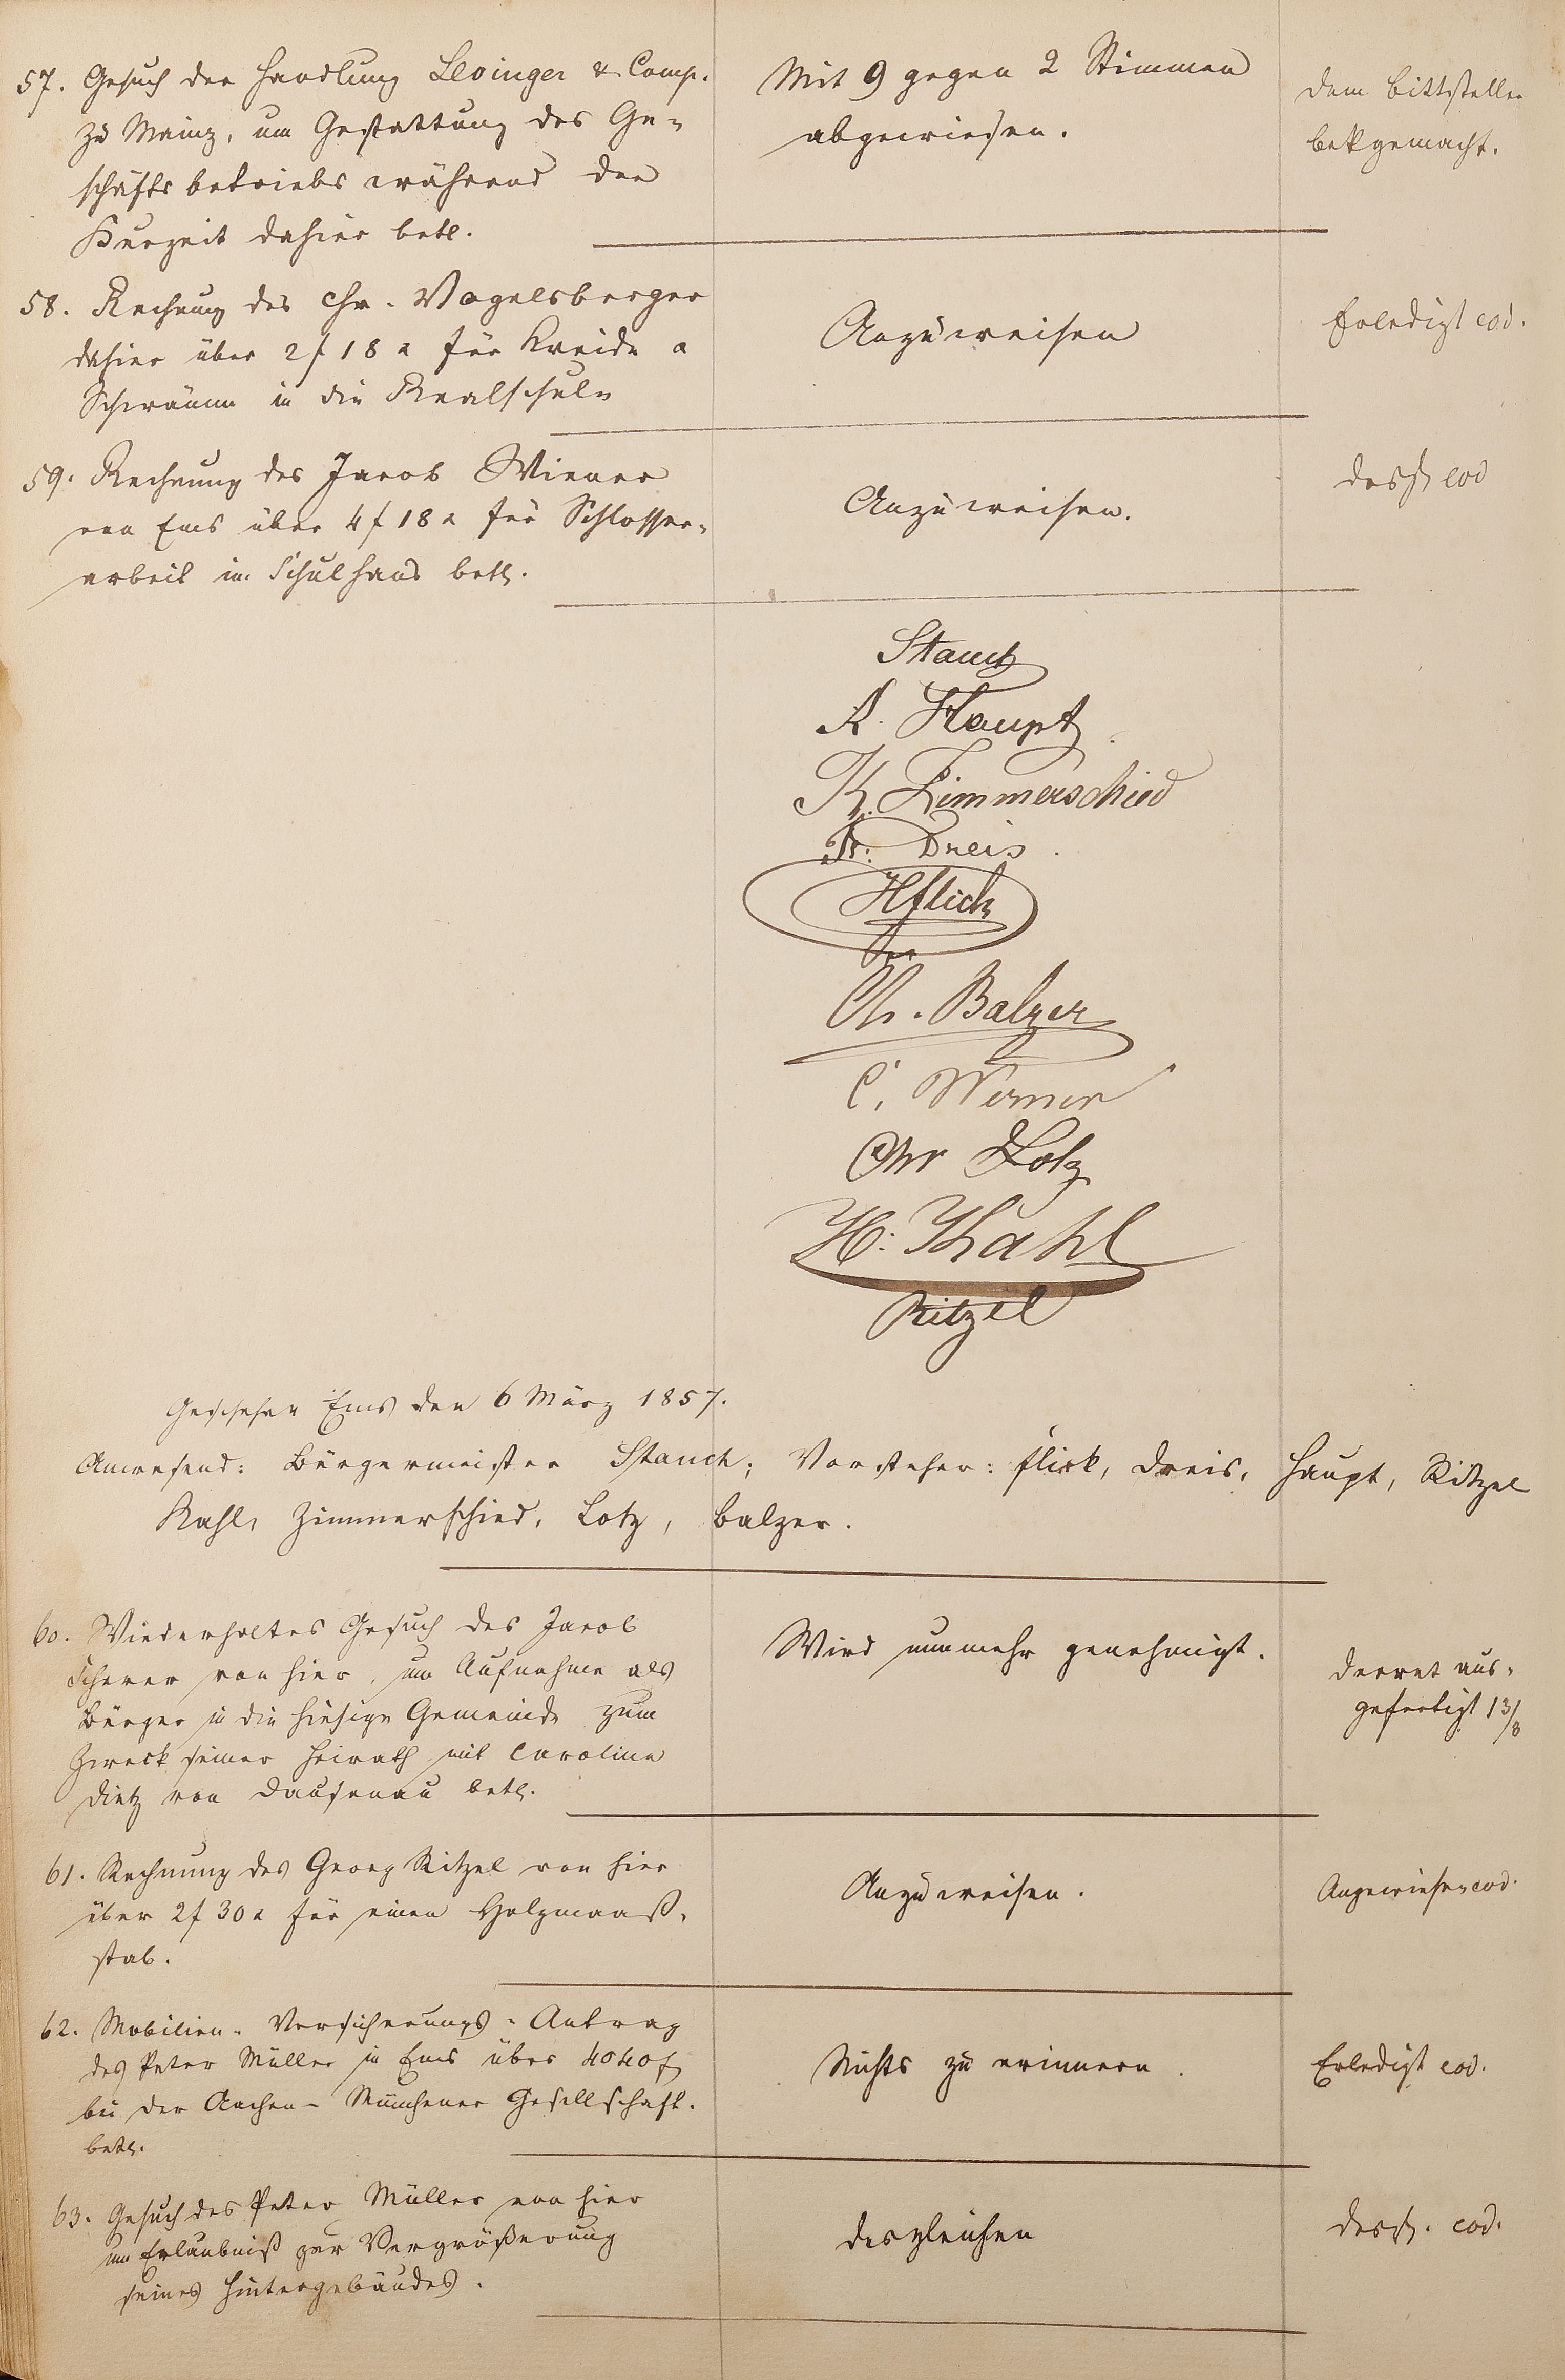 57. Gesuch der Handlung Levinger & Comp.
zu Mainz, um Gestattung des Ge-
schäftsbetriebs während der
Kurzeit dahier betr.
Mit 9 gegen 2 Stimmen
abgewiesen.
Dem Bittsteller
bekgemacht.
58. Rechnung des Chr. Vogelsberger
dahier über 2 f 18 x für Kreide &
Schwämme in die Realschule
Anzuweisen
Erledigt eod.
59. Rechnung des Jacob Wiener
von Ems über 4 f 18 x für Schlosser-
arbeit im Schulhaus betr.
Anzuweisen.
Desgl eod
Stauch
A. Haupt
K. Zimmerschied
Fr. Dreis
H flick
Chr. Balzer
C. Werner
Chr Lotz
H. Kahl
Ritzel
Geschehen Ems den 6 März 1857.
Anwesend: Bürgermeister Stauch; Vorsteher: Flick, Dreis, Haupt, Ritzel
Kahl, Zimmerschied, Lotz, Balzer.
60. Wiederholtes Gesuch des Jacob
Scherer von hier, um Aufnahme als
Bürger in die hiesige Gemeinde zum
Zweck seiner Heirath mit Caroline
Dietz von Dausenau betr.
Wird nunmehr genehmigt.
Decret aus-
gefertigt 13/3
61. Rechnung des Georg Ritzel von hier
über 2 f 30 x für einen Holzmaaß-
stab.
Anzuweisen.
Angewiesen eod.
62. Mobilien-Versicherungs-Antrag
des Peter Müller in Ems über 4040 f
bei der Aachen-Münchener Gesellschaft.
betr.
Nichts zu erinnern.
Erledigt eod.
63. Gesuch des Peter Müller von hier
um Erlaubniß zur Vergrößerung
seines Hintergebäudes.
desgleichen
Desgl. eod.